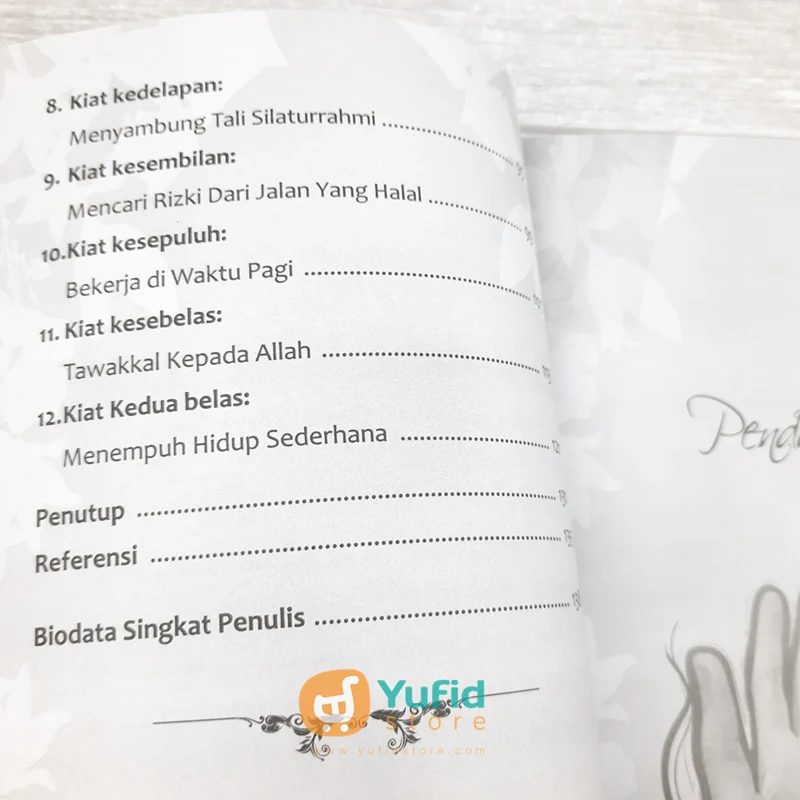 8. Kiat kedelapan:
Menyambung Tali Silaturrahmi ........................
9. Kiat kesembilan:
Mencari Rizki Dari Jalan Yang Halal ................
10.Kiat kesepuluh:
Bekerja di Waktu Pagi ....................................
11. Kiat kesebelas:
Tawakkal Kepada Allah .................................. 113
12.Kiat Kedua belas:
Menempuh Hidup Sederhana ........................ 121
Penutup ................................................................ 131
Referensi .............................................................. 135
Biodata Singkat Penulis ......................................
Yufid
store
www.yufidstore.com